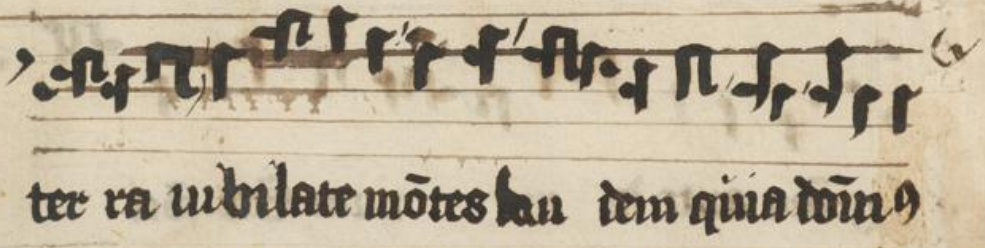 ter ra iubilate mōtes lau dem quia dom̄nꝰ